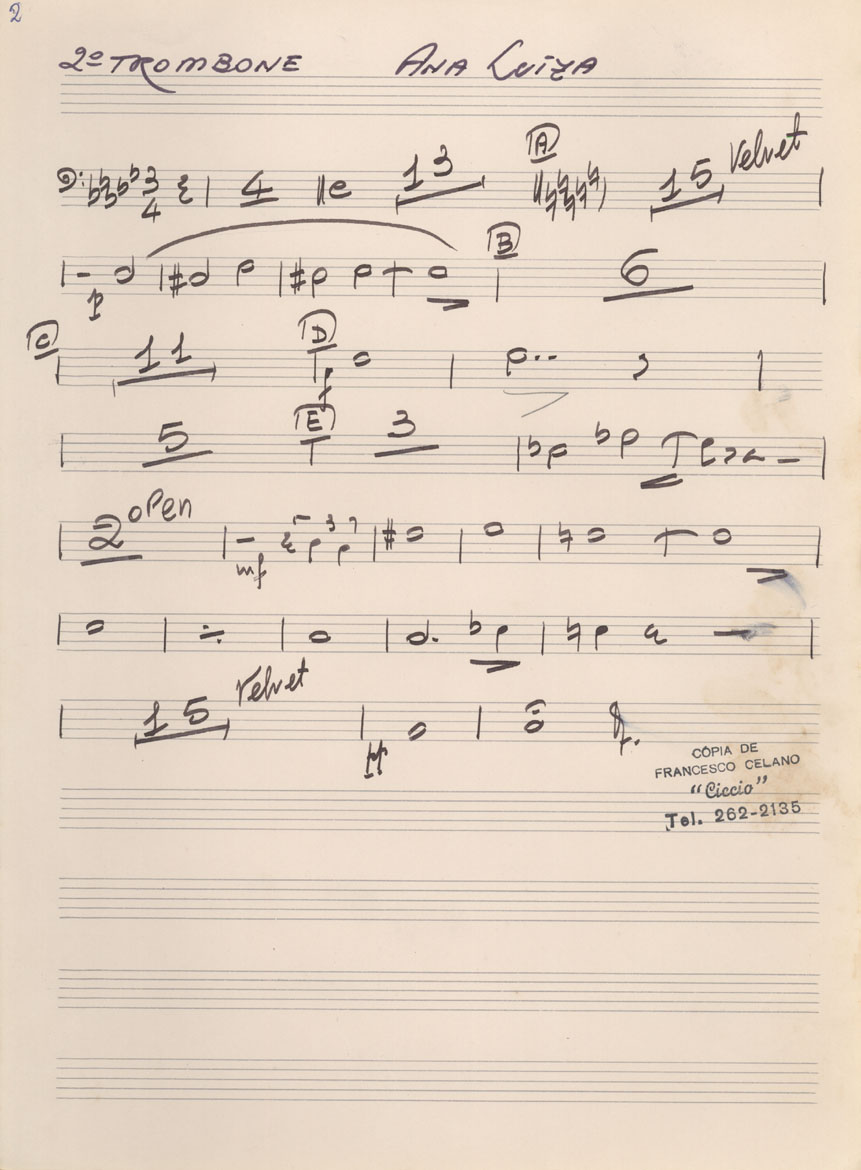 2
2º TROMBONE ANA LUIZA
3 4 4 13 A 15 Velvet
p B 6
C 11 D f
5 E 3
2 open mf 3
15 Velvet pp
CÓPIA DE
FRANCESCO CELANO
"Ciccio"
Tel. 262-2135